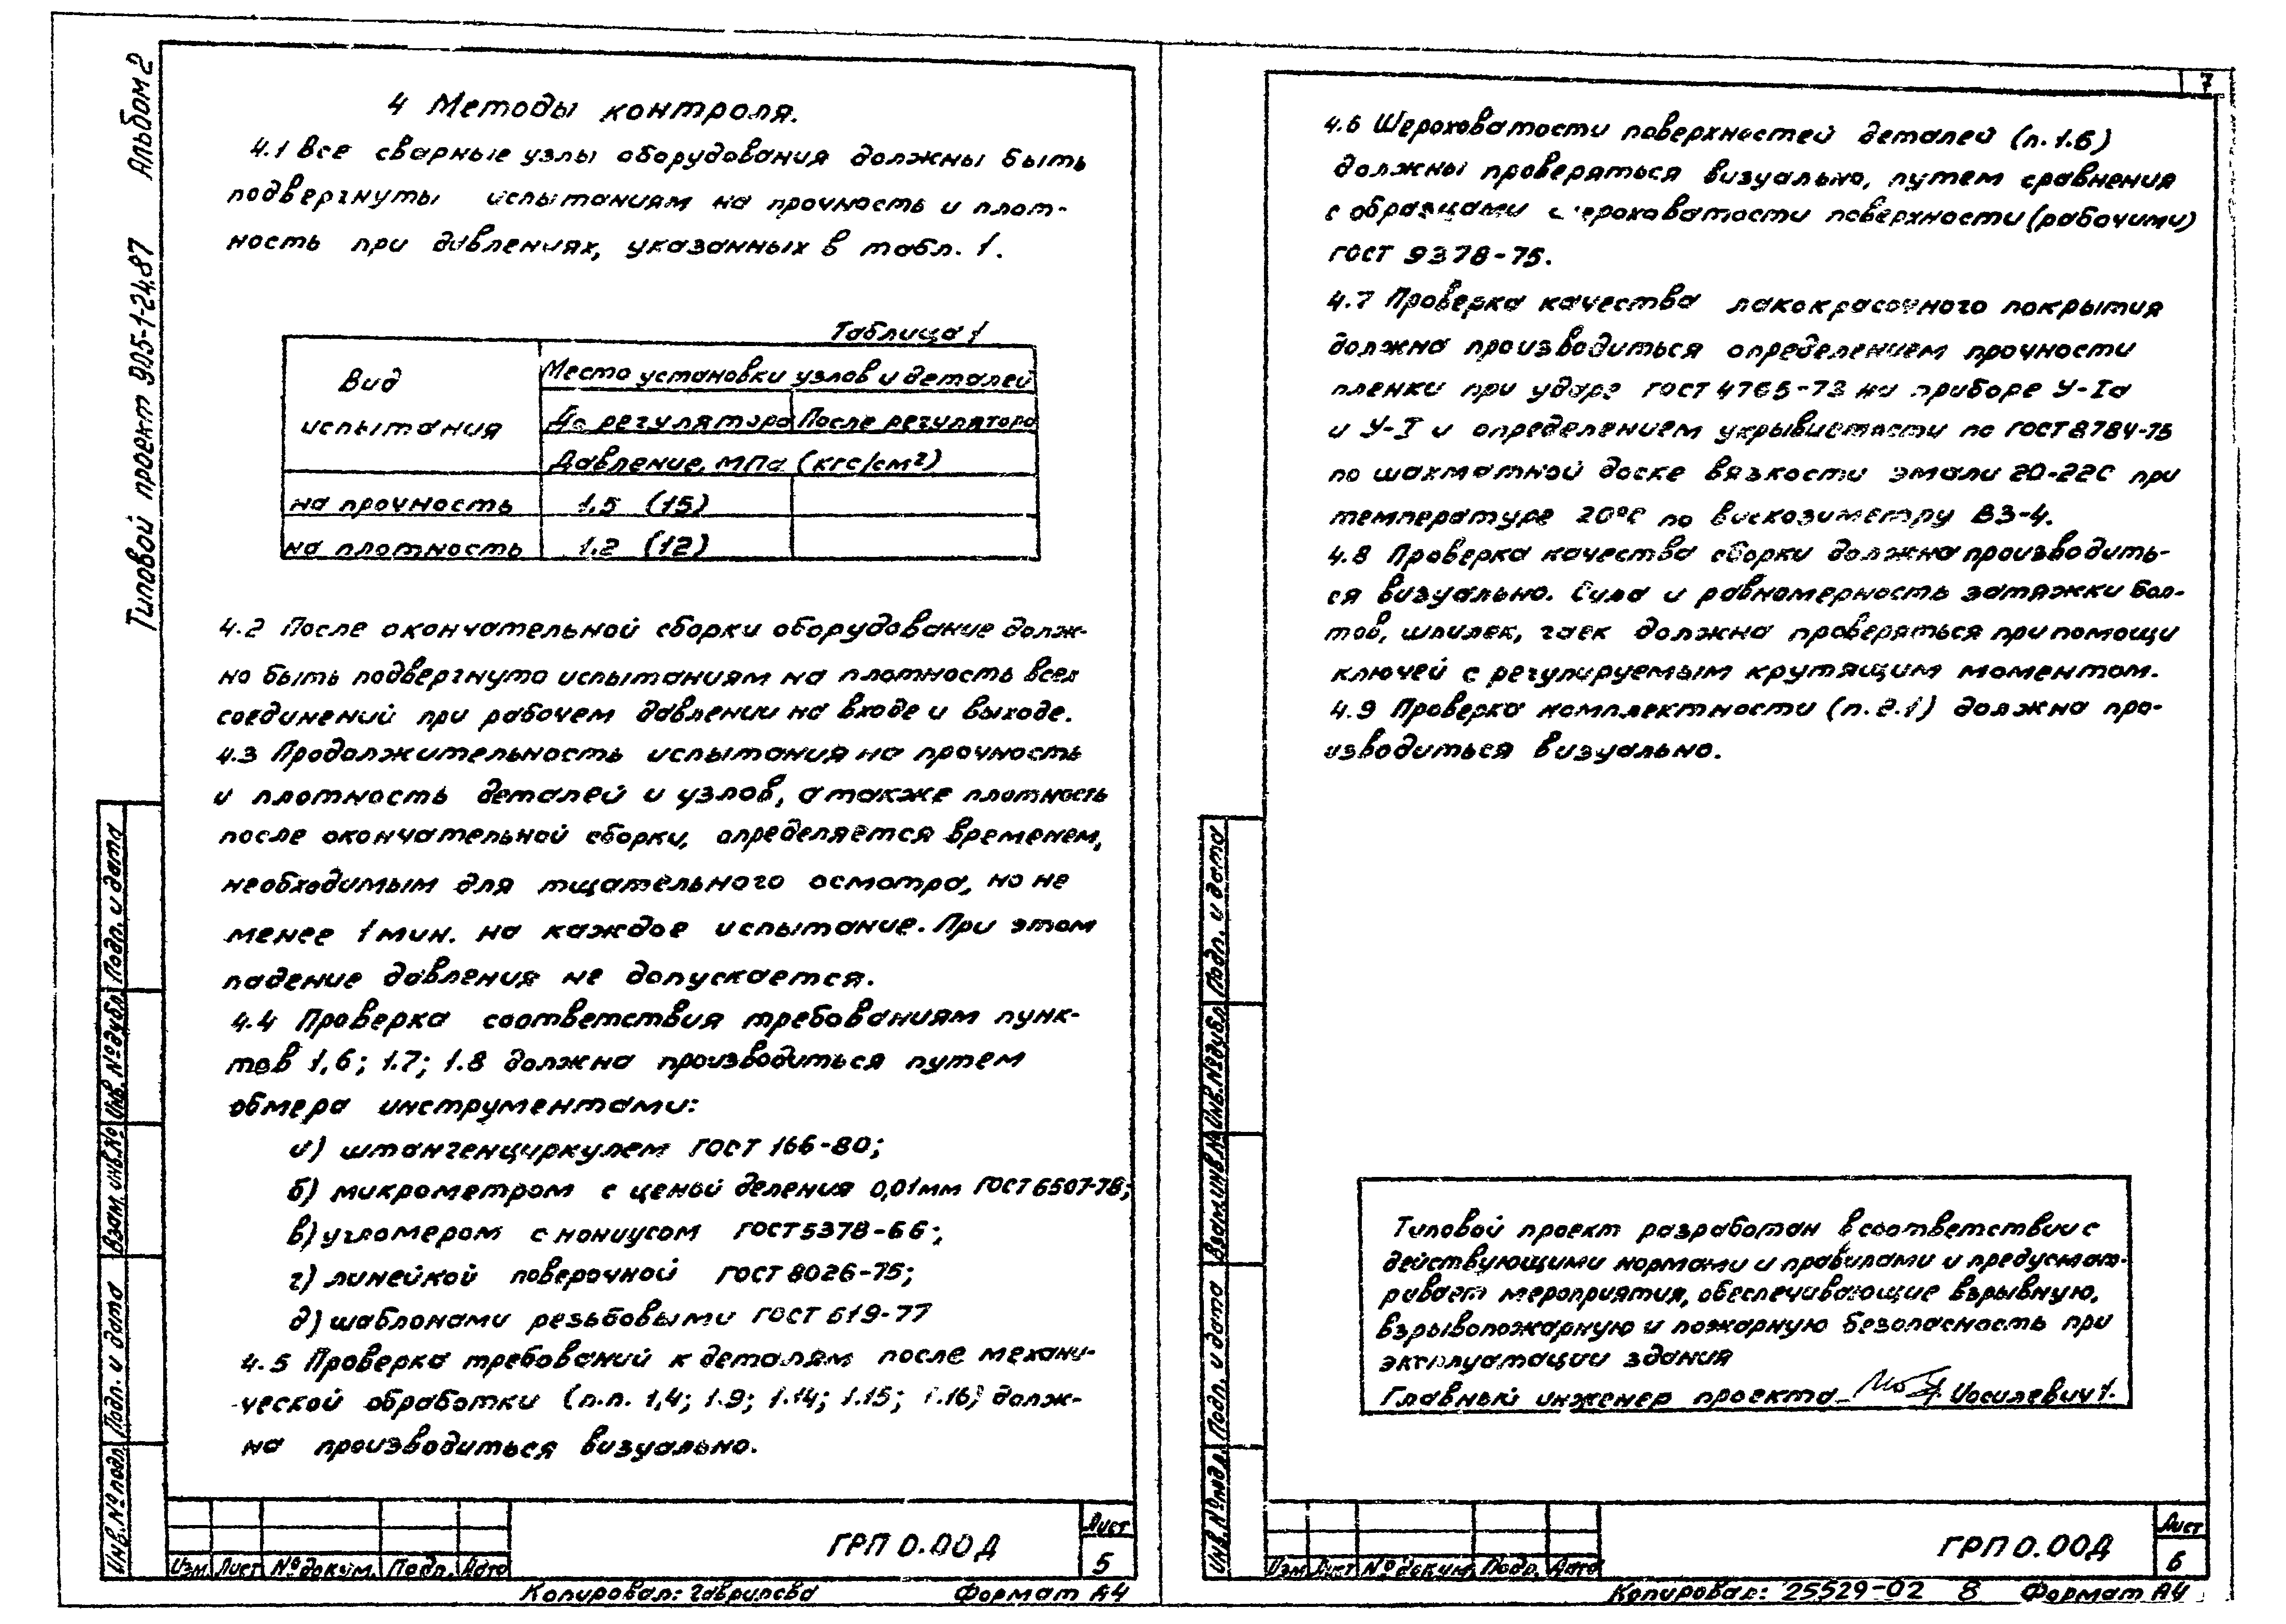 Альбом 2
Типовой проект 905-1-24.87
4 Методы контроля.
4.1 Все сварные узлы оборудования должны быть
подвергнуты испытаниям на прочность и плот-
ность при давлениях, указанных в табл. 1.
Таблица 1
Вид испытания
Место установки узлов и деталей
До регулятора После регулятора
Давление, МПа (кгс/см²)
на прочность 1.5 (15)
на плотность 1.2 (12)
4.2 После окончательной сборки оборудование долж-
но быть подвергнуто испытаниям на плотность всех
соединений при рабочем давлении на входе и выходе.
4.3 Продолжительность испытания на прочность
и плотность деталей и узлов, а также плотность
после окончательной сборки, определяется временем,
необходимым для тщательного осмотра, но не
менее 1 мин. на каждое испытание. При этом
падение давления не допускается.
4.4 Проверка соответствия требованиям пунк-
тов 1,6; 1.7; 1.8 должна производиться путем
обмера инструментами:
а) штангенциркулем ГОСТ 166-80;
б) микрометром с ценой деления 0,01мм ГОСТ 6507-78;
в) угломером с нониусом ГОСТ 5378-66;
г) линейкой поверочной ГОСТ 8026-75;
д) шаблонами резьбовыми ГОСТ 519-77
4.5 Проверка требований к деталям после механи-
ческой обработки (п.п. 1,4; 1.9; 1.14; 1.15; 1.16) долж-
на производиться визуально.
Инв.№подл. Подп. и дата Взам. инв.№ Инв.№дубл. Подп. и дата
Изм Лист №докум. Подп. Дата
ГРП 0.00Д
Лист
5
Копировал: Гаврилова Формат А4
7
4.6 Шероховатости поверхностей деталей (п. 1.6)
должны проверяться визуально, путем сравнения
с образцами шероховатости поверхности (рабочими)
ГОСТ 9378-75.
4.7 Проверка качества лакокрасочного покрытия
должна производиться определением прочности
пленки при ударе ГОСТ 4765-73 на приборе У-Iа
и У-I и определением укрывистости по ГОСТ 8784-75
по шахматной доске вязкости эмали 20-22С при
температуре 20°С по вискозиметру ВЗ-4.
4.8 Проверка качества сборки должна производить-
ся визуально. Сила и равномерность затяжки бол-
тов, шпилек, гаек должна проверяться при помощи
ключей с регулируемым крутящим моментом.
4.9 Проверка комплектности (п. 2.1) должна про-
изводиться визуально.
Типовой проект разработан в соответствии с
действующими нормами и правилами и предусмат-
ривает мероприятия, обеспечивающие взрывную,
взрывопожарную и пожарную безопасность при
эксплуатации здания
Главный инженер проекта
Инв.№подл. Подп. и дата Взам.инв.№ Инв.№дубл. Подп. и дата
Изм Лист №докум. Подп. Дата
ГРП 0.00Д
Лист
6
Копировал: 25529-02 8 Формат А4